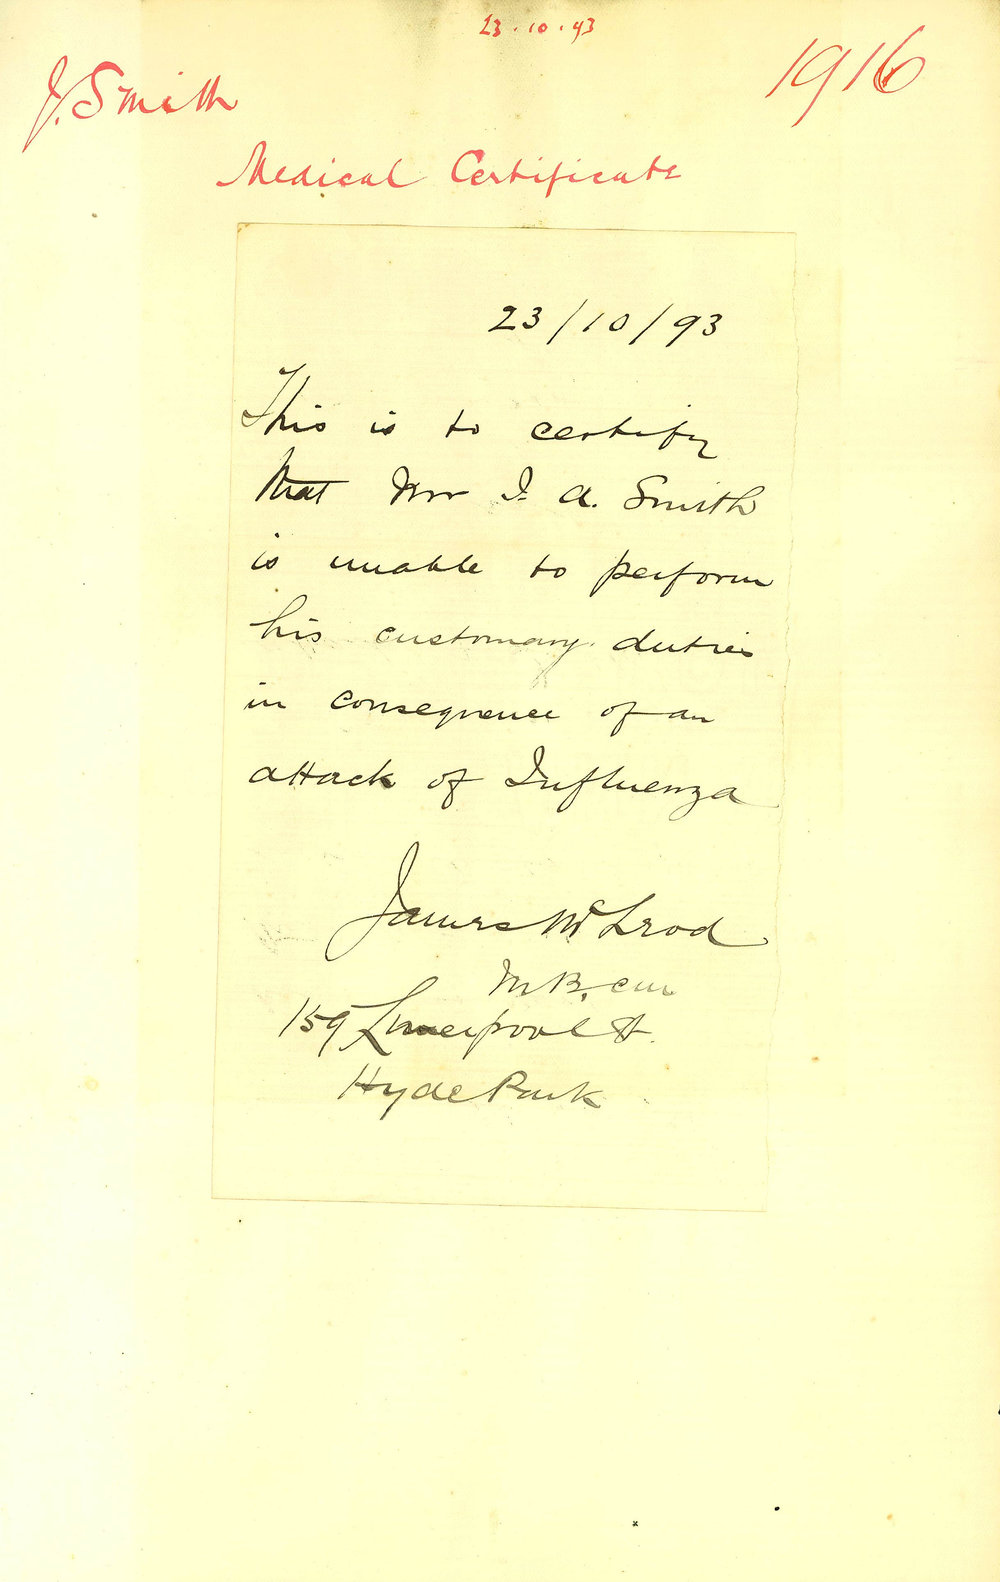 23.10.93
1916
J. Smith
Medical Certificate
23/10/93
This is to certify
that Mr J. A. Smith
is unable to perform
his customary duties
in consequence of an
attack of Influenza
James McLeod
M.B., C.M.
159 Liverpool St.
Hyde Park